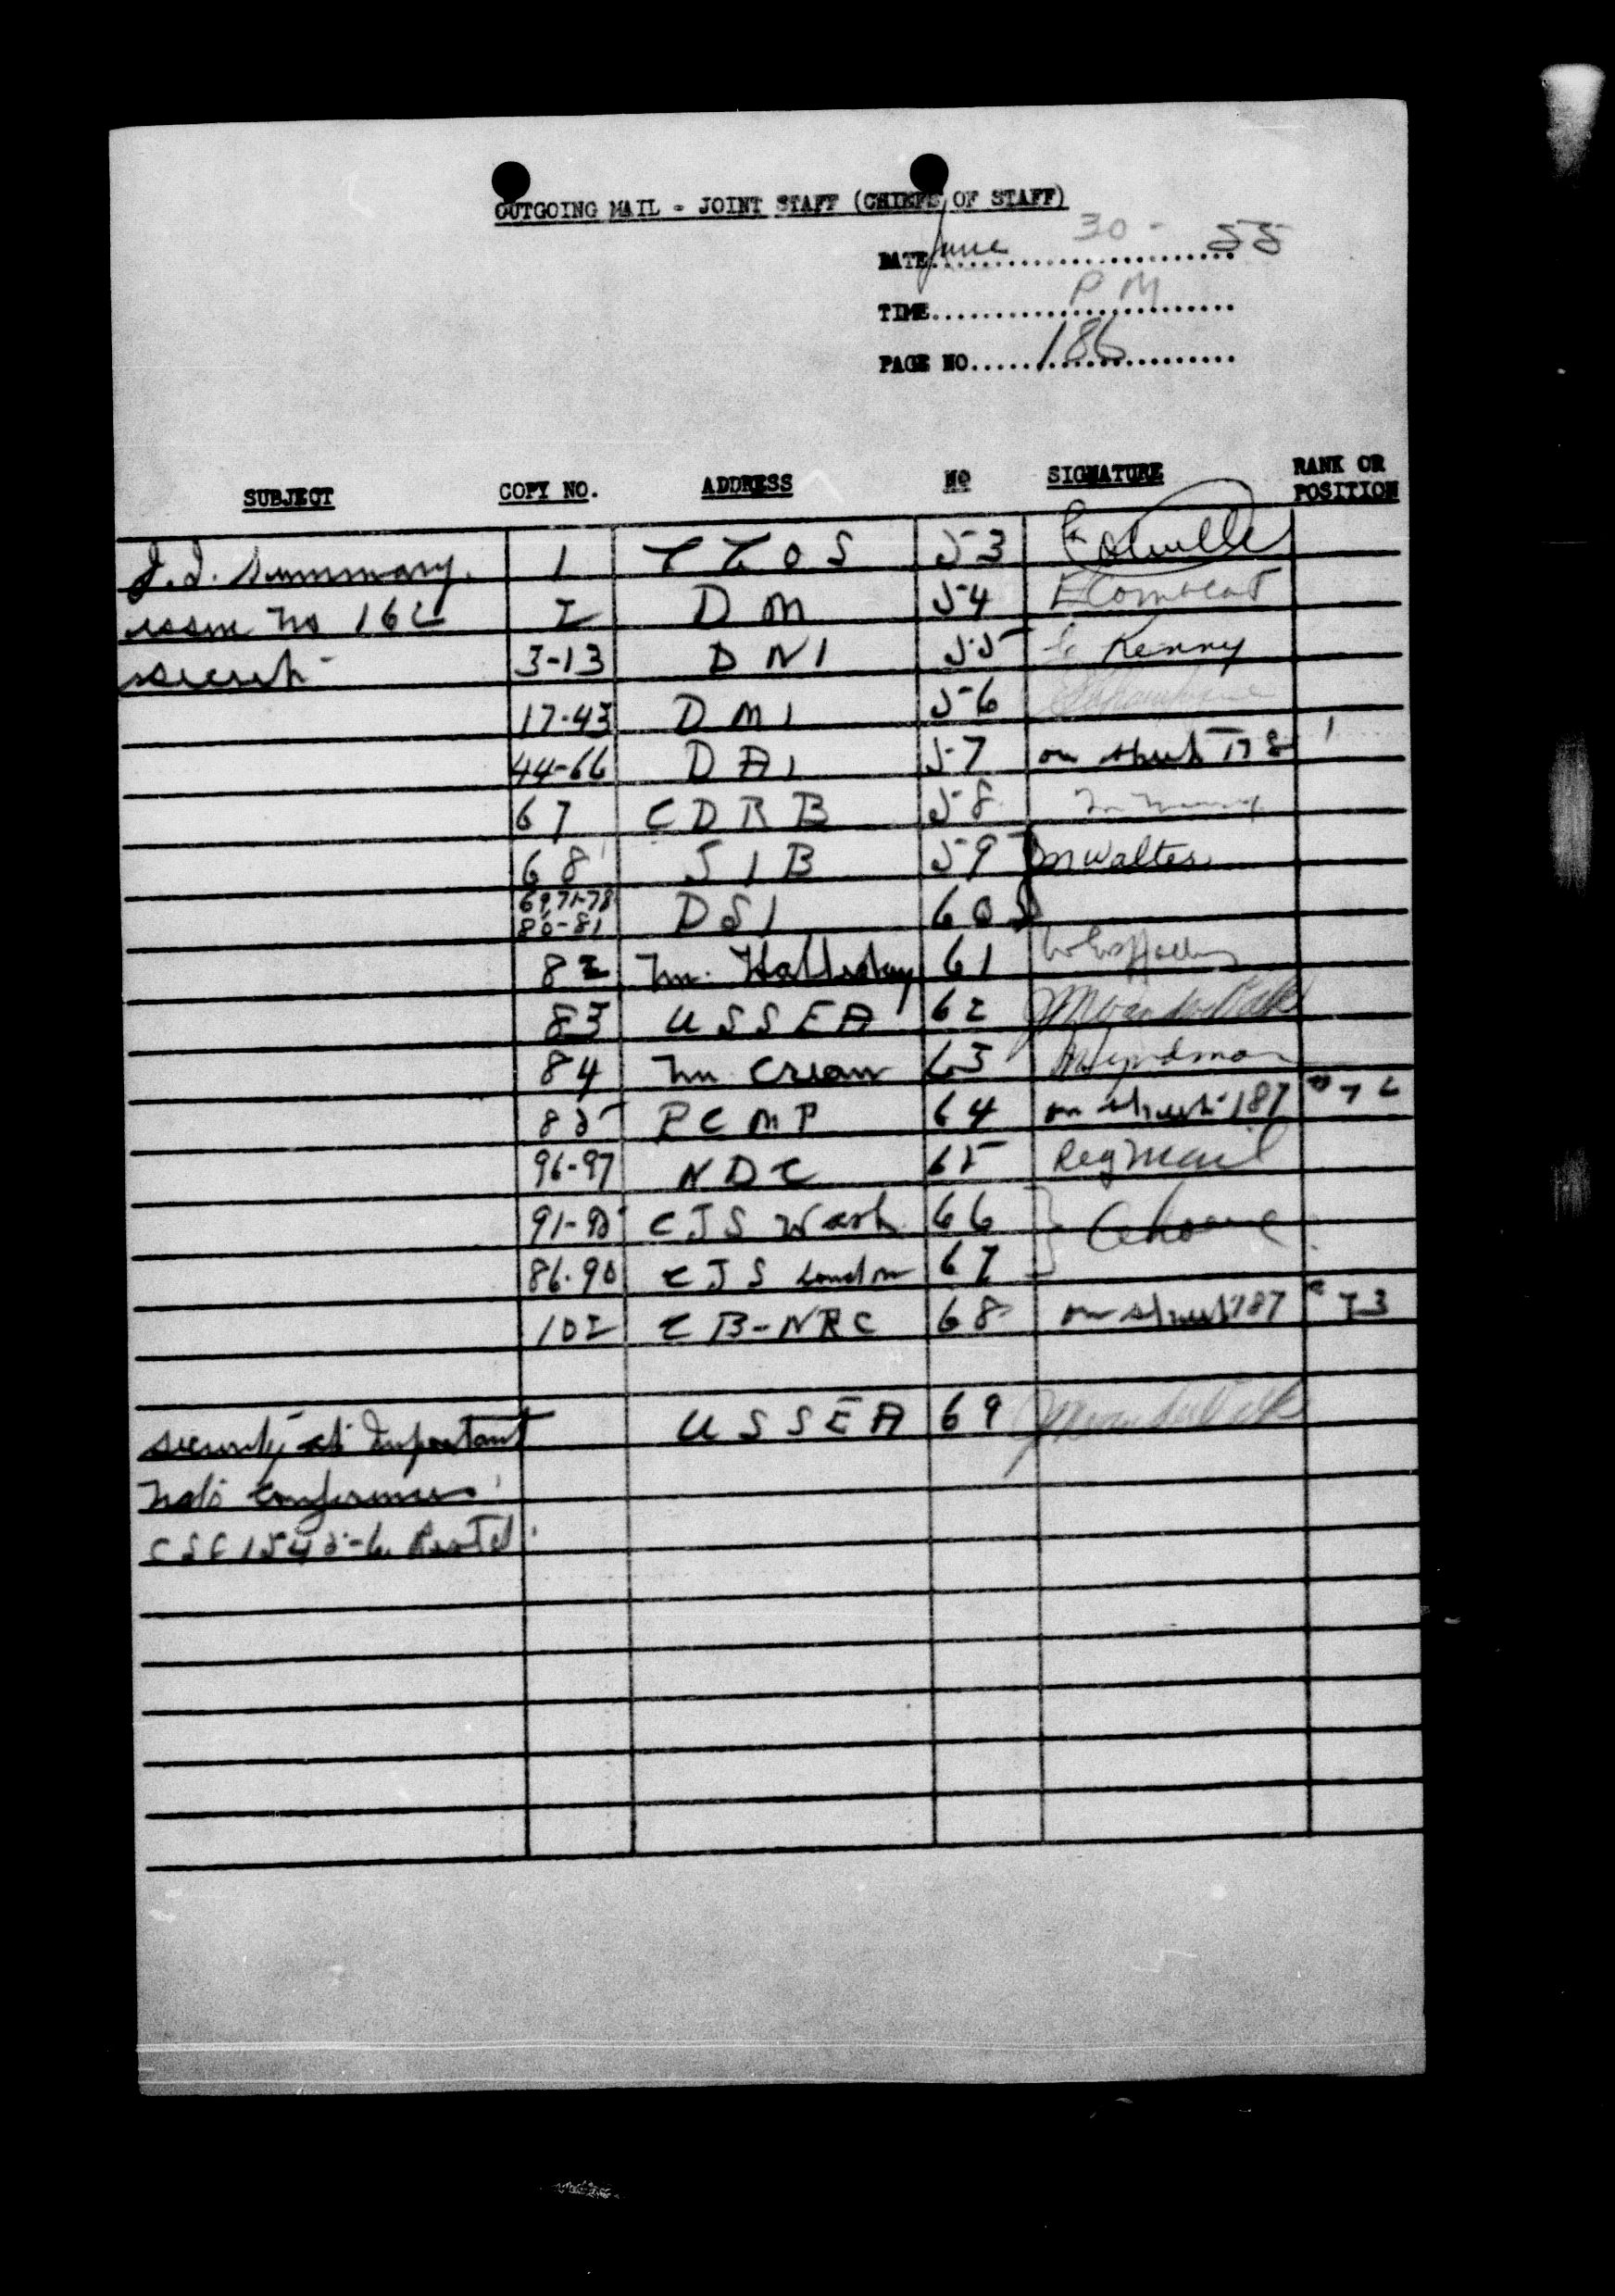 OUTGOING MAIL - JOINT STAFF (CHIEFS OF STAFF)
DATE June 30 - 55
TIME PM
PAGE NO 186
SUBJECT COPY NO. ADDRESS NO SIGNATURE RANK OR POSITION
J.I. Summary. 1 CCOS 53
issue No 162 2 DM 54
secret 3-13 DNI 55 Kenny
17-43 DMI 56
44-66 DAI 57 on sheet 178 1
67 CDRB 58
68 JIB 59 M Walter
69,71-78 80-81 DSI 60
82 Mr. Halliday 61
83 USSEA 62
84 Mr. Crean 63 M Wyndman
85 RCMP 64 on sheet 187 72
96-97 NDC 65 Reg Mail
91-95 CJS Wash 66
86-90 CJS London 67
102 CB-NRC 68 on sheet 187 73
USSEA 69
Security at Important
Nato Conferences
CSC 1545-6